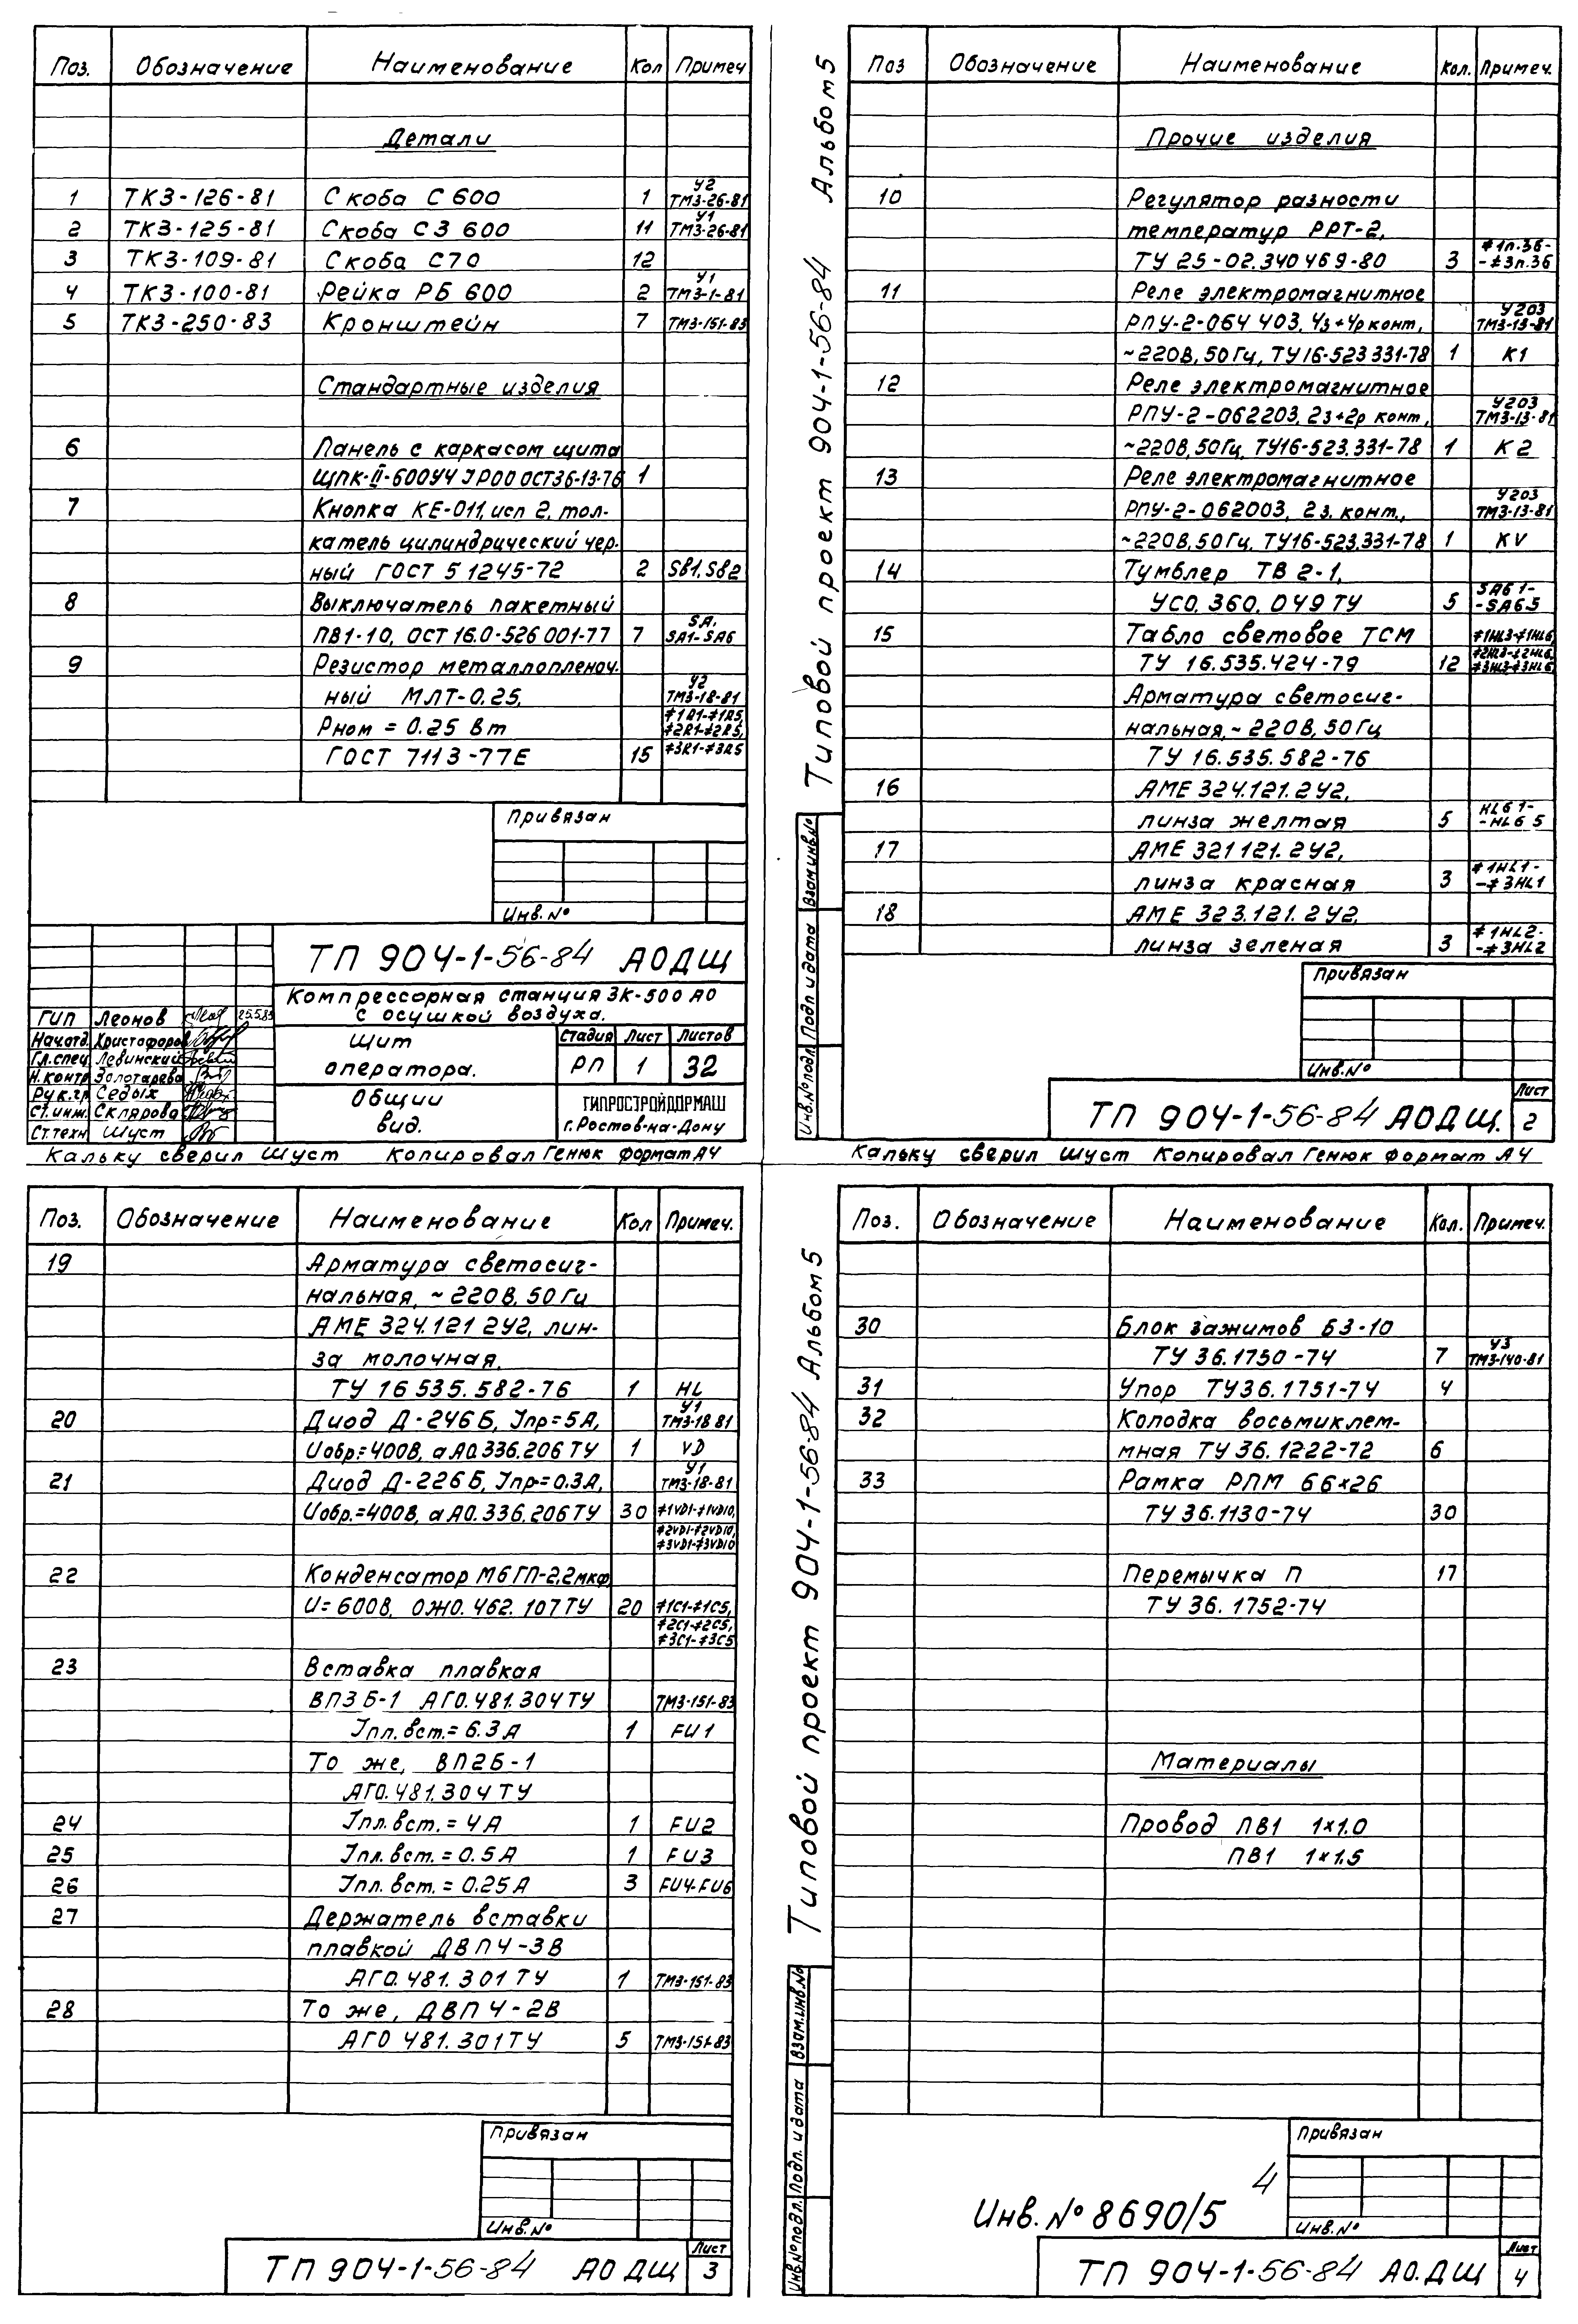 Поз. Обозначение Наименование Кол Примеч
Детали
У2
1 ТК3-126-81 Скоба С 600 1 ТМ3-26-81
У1
2 ТК3-125-81 Скоба С3 600 11 ТМ3-26-81
3 ТК3-109-81 Скоба С70 12
У1
4 ТК3-100-81 Рейка РБ 600 2 ТМ3-1-81
5 ТК3-250-83 Кронштейн 7 ТМ3-151-83
Стандартные изделия
6 Панель с каркасом щита
ЩПК-II-600УЧ JР00 ОСТ36-13-76 1
7 Кнопка КЕ-011, исп 2, тол-
катель цилиндрический чер-
ный ГОСТ 5 1245-72 2 Sв1, Sв2
8 Выключатель пакетный
SA,
ПВ1-10, ОСТ 16.0-526 001-77 7 SA1-SA6
9 Резистор металлопленоч.
У2
ный МЛТ-0.25, ТМ3-18-81
#1R1-#1R5,
Рном = 0.25 Вт #2R1-#2R5,
ГОСТ 7113-77Е 15 #3R1-#3R5
Привязан
Инв. №
ТП 904-1-56-84 АОДЩ
Компрессорная станция 3К-500 АО
с осушкой воздуха.
ГИП Леонов 25.5.83
Нач.отд. Христофоров
Гл.спец. Левинский
Н.контр Золотарева
Рук.гр. Седых
Ст.инж. Склярова
Ст.техн Шуст
Щит
оператора.
Общий
вид.
Стадия Лист Листов
РП 1 32
ГИПРОСТРОЙДОРМАШ
г.Ростов-на-Дону
Кальку сверил Шуст Копировал Генюк формат А4
Типовой проект 904-1-56-84 Альбом 5
Поз Обозначение Наименование Кол. Примеч.
Прочие изделия
10 Регулятор разности
температур РРТ-2,
#1п.36-
ТУ 25-02.340469-80 3 -#3п.36
11 Реле электромагнитное
У203
РПУ-2-064 403, 4з+4р конт, ТМ3-13-81
~220В, 50Гц, ТУ16-523 331-78 1 К1
12 Реле электромагнитное
У203
РПУ-2-062203, 2з+2р конт, ТМ3-13-81
~220В, 50Гц, ТУ16-523.331-78 1 К2
13 Реле электромагнитное
У203
РПУ-2-062003, 2з. конт., ТМ3-13-81
~220В, 50Гц, ТУ16-523.331-78 1 КV
14 Тумблер ТВ 2-1,
SA6 1-
УС0.360.049 ТУ 5 -SA6.5
15 Табло световое ТСМ #1HL3-#1HL6,
#2HL3-#2HL6,
ТУ 16.535.424-79 12 #3HL3-#3HL6
Арматура светосиг-
нальная, ~220В, 50Гц
ТУ 16.535.582-76
16 АМЕ 324.121.2У2,
HL6 1-
линза желтая 5 -HL6 5
17 АМЕ 321 121.2У2,
#1HL1-
линза красная 3 -#3HL1
18 АМЕ 323.121.2У2,
#1HL2-
линза зеленая 3 -#3HL2
Взам инв.№
Подп и дата
Инв.№ подл.
Привязан
Инв.№
ТП 904-1-56-84 АОДЩ.
Лист
2
Кальку сверил Шуст Копировал Генюк Формат А4
Поз. Обозначение Наименование Кол Примеч.
19 Арматура светосиг-
нальная, ~220В, 50Гц
АМЕ 324.121 2У2, лин-
за молочная,
ТУ 16 535.582-76 1 HL
У1
20 Диод Д-246Б, Jпр=5А, ТМ3-18 81
Uобр.=400В, аА0.336.206 ТУ 1 VD
У1
21 Диод Д-226Б, Jпр=0.3А, ТМ3-18-81
Uобр.=400В, аА0.336.206 ТУ 30 #1VD1-#1VD10,
#2VD1-#2VD10,
#3VD1-#3VD10
22 Конденсатор МбГП-2,2мкф,
U=600В, ОЖ0.462.107 ТУ 20 #1С1-#1С5,
#2С1-#2С5,
#3С1-#3С5
23 Вставка плавкая
ВП3Б-1 АГ0.481.304 ТУ ТМ3-151-83
Jпл.вст.=6.3А 1 FU1
То же, ВП2Б-1
АГ0.481.304 ТУ
24 Jпл.вст.=4А 1 FU2
25 Jпл.вст.=0.5А 1 FU3
26 Jпл.вст.=0.25А 3 FU4-FU6
27 Держатель вставки
плавкой ДВП4-3В
АГ0.481.301 ТУ 1 ТМ3-151-83
28 То же, ДВП4-2В
АГ0 481.301ТУ 5 ТМ3-151-83
Привязан
Инв.№
ТП 904-1-56-84 АОДЩ
Лист
3
Типовой проект 904-1-56-84 Альбом 5
Поз. Обозначение Наименование Кол. Примеч.
30 Блок зажимов БЗ-10
У3
ТУ 36.1750-74 7 ТМ3-140-81
31 Упор ТУ36.1751-74 4
32 Колодка восьмиклем-
мная ТУ 36.1222-72 6
33 Рамка РПМ 66×26
ТУ 36.1130-74 30
Перемычка П 17
ТУ 36.1752-74
Материалы
Провод ПВ1 1×1.0
ПВ1 1×1.5
Взам.инв.№
Подп. и дата
Инв.№ подл.
Привязан
4
Инв.№ 8690/5
Инв.№
ТП 904-1-56-84 АО.ДЩ
Лист
4